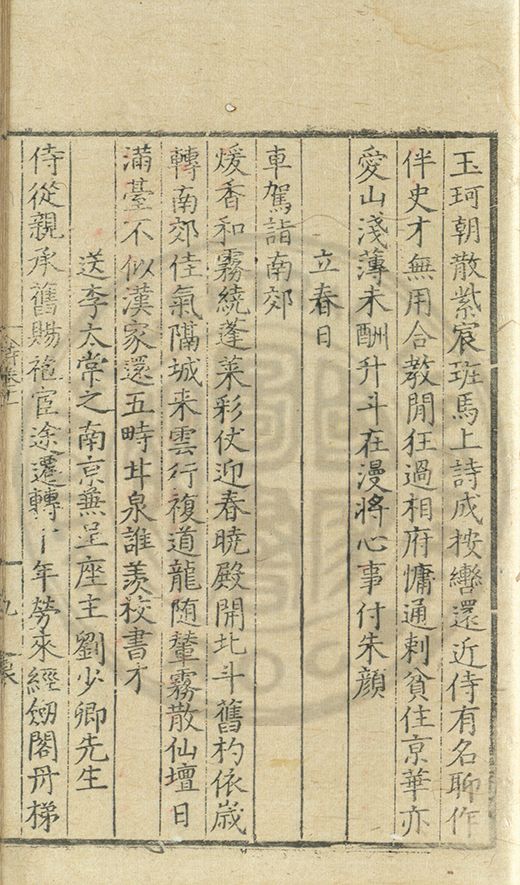 玉珂朝散紫宸班馬上詩成按轡還近侍有名聊作
伴史才無用合教閒狂過相府慵通刺貧住亰華亦
愛山淺薄未酬升斗在漫將心事付朱顔
立春日
車駕詣南郊
煖香和霧繞蓬萊彩仗迎春曉殿開北斗舊杓依歲
轉南郊佳氣隔城来雲行複道龍随輦霧散仙壇日
滿臺不似漢家還五時甘泉誰羨校書才
送李太常之南京兼呈座主劉少卿先生
侍從親承舊賜袍宦途遷轉十年勞来經劒閣丹梯
九